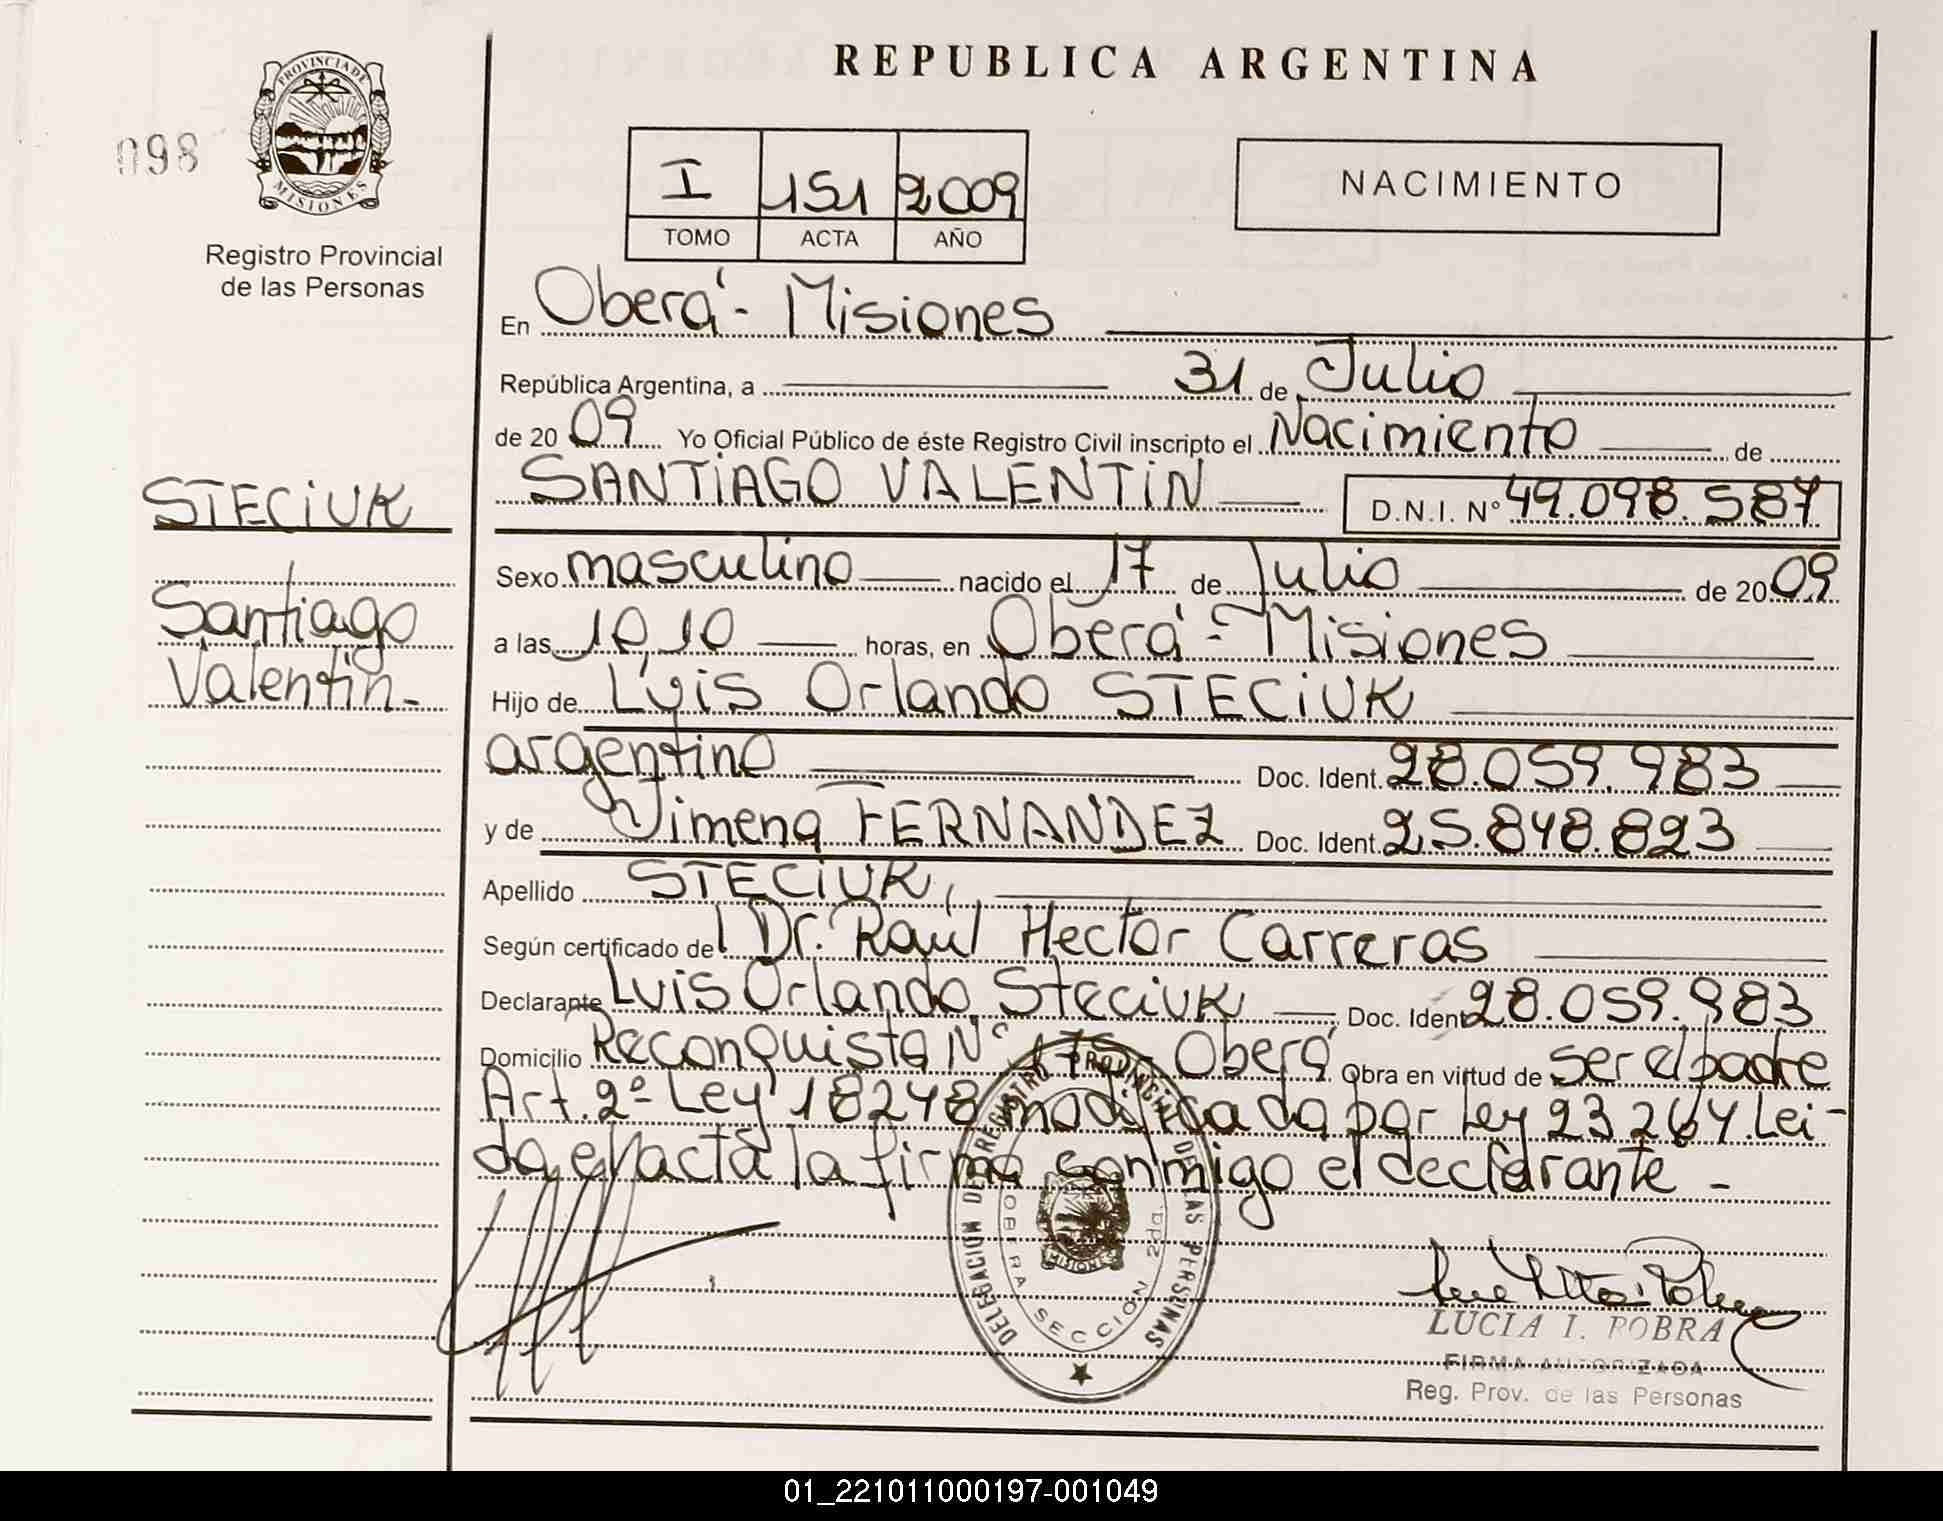 REPUBLICA ARGENTINA
PROVINCIA DE
MISIONES
098
Registro Provincial
de las Personas
I 151 2009
TOMO ACTA AÑO
NACIMIENTO
En Oberá - Misiones
República Argentina, a 31 de Julio
de 20 09 Yo Oficial Público de éste Registro Civil inscripto el Nacimiento de
SANTIAGO VALENTIN D.N.I. N° 49.098.587
STECIUK
Santiago
Valentin.-
Sexo masculino nacido el 17 de Julio de 20 09
a las 10,10 horas, en Oberá - Misiones
Hijo de Luis Orlando STECIUK
argentino Doc. Ident. 28.059.983
y de Jimena FERNANDEZ Doc. Ident. 25.848.823
Apellido STECIUK,
Según certificado del Dr. Raúl Hector Carreras
Declarante Luis Orlando Steciuk Doc. Ident 28.059.983
Domicilio Reconquista N° 175 - Oberá Obra en virtud de ser el padre
Art. 2º Ley 18248 modificada por Ley 23264. Lei-
da el acta la firma conmigo el declarante -
DELEGACION DEL REGISTRO PROVINCIAL DE LAS PERSONAS
OBERA SECCION 2da.
MISIONES
LUCIA I. POBRA
FIRMA AUTORIZADA
Reg. Prov. de las Personas
01_221011000197-001049